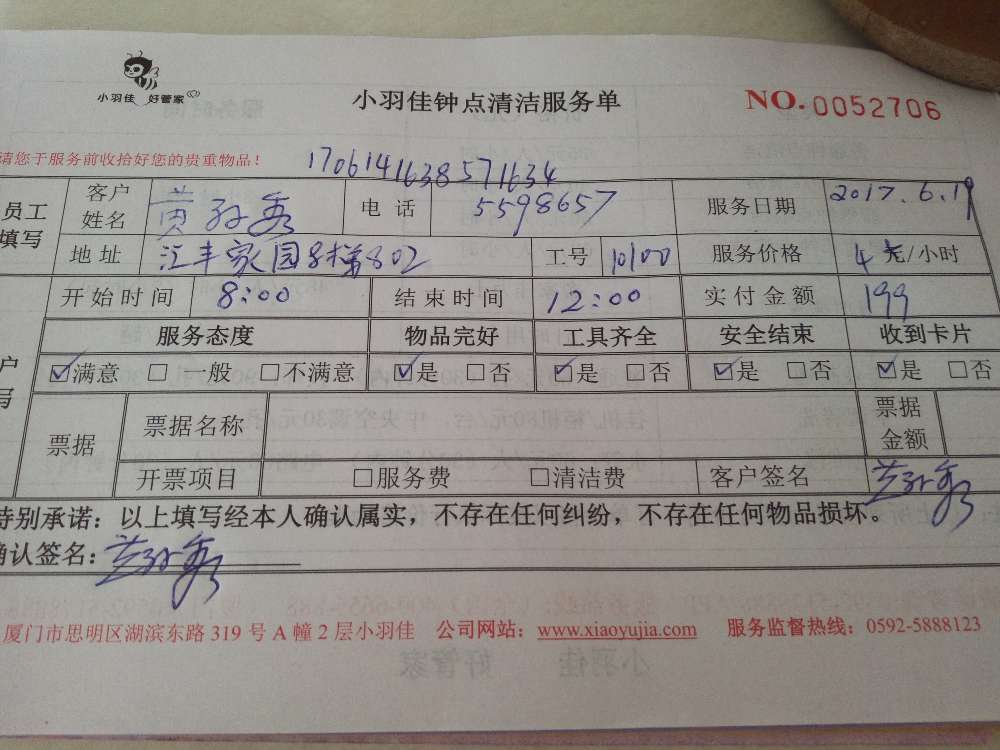 小羽佳 好管家
小羽佳钟点清洁服务单
NO.0052706
请您于服务前收拾好您的贵重物品！
1706141638571634
员工填写 客户姓名 黄孙秀 电话 5598657 服务日期 2017.6.19
地址 汇丰家园8梯802 工号 10100 服务价格 4 元/小时
开始时间 8:00 结束时间 12:00 实付金额 199
服务态度 物品完好 工具齐全 安全结束 收到卡片
户写 ☑满意 □一般 □不满意 ☑是 □否 ☑是 □否 ☑是 □否 ☑是 □否
票据 票据名称 票据金额
开票项目 □服务费 □清洁费 客户签名 黄孙秀
特别承诺：以上填写经本人确认属实，不存在任何纠纷，不存在任何物品损坏。
确认签名：黄孙秀
厦门市思明区湖滨东路 319 号 A 幢 2 层小羽佳 公司网站：www.xiaoyujia.com 服务监督热线：0592-5888123